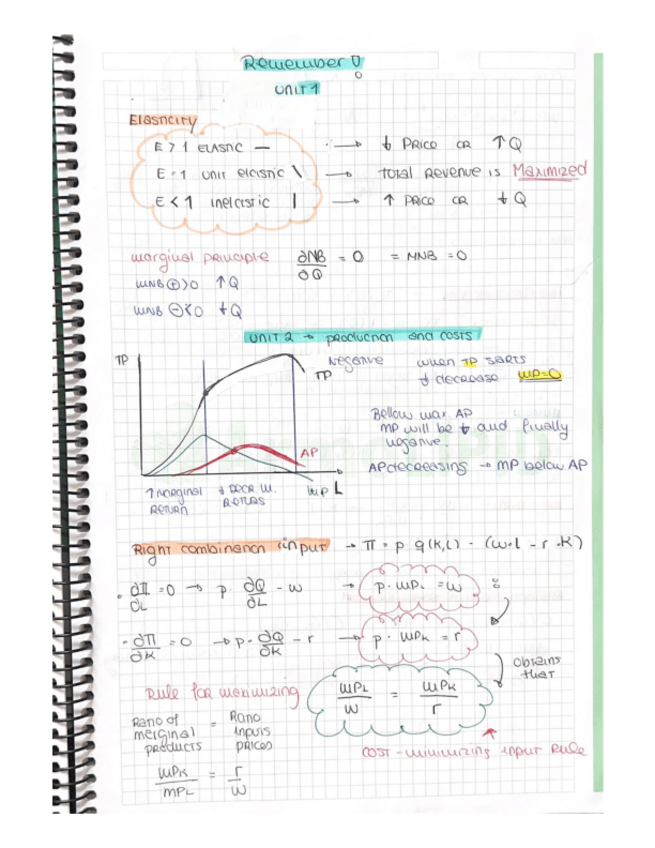 Remember !
UNIT 1
Elasticity
E > 1 ELASTIC — → ↓ PRICE OR ↑ Q
E = 1 UNIT elastic \ → TOTAL REVENUE IS MAXIMIZED
E < 1 inelastic | → ↑ PRICE OR ↓ Q
marginal principle ∂NB/∂Q = 0 = MNB = 0
MNB ⊕ > 0 ↑ Q
MNB ⊖ < 0 ↓ Q
UNIT 2 → production and costs
TP
Negative
TP
when TP starts
↓ decrease MP=0
Bellow max AP
MP will be ↓ and finally
negative.
AP
AP decreasing → MP below AP
MP L
↑ MARGINAL RETURN
↓ DECR M. RETURS
Right combination input → π = p q(K,L) - (w·L - r·K)
• ∂π/∂L = 0 → p · ∂Q/∂L - w → p · MPL = w
• ∂π/∂K = 0 → p · ∂Q/∂K - r → p · MPK = r
obtains
that
Rule for maximizing
MPL/w = MPK/r
Ratio of marginal products = Ratio inputs prices
COST-minimizing input Rule
MPK/MPL = r/w